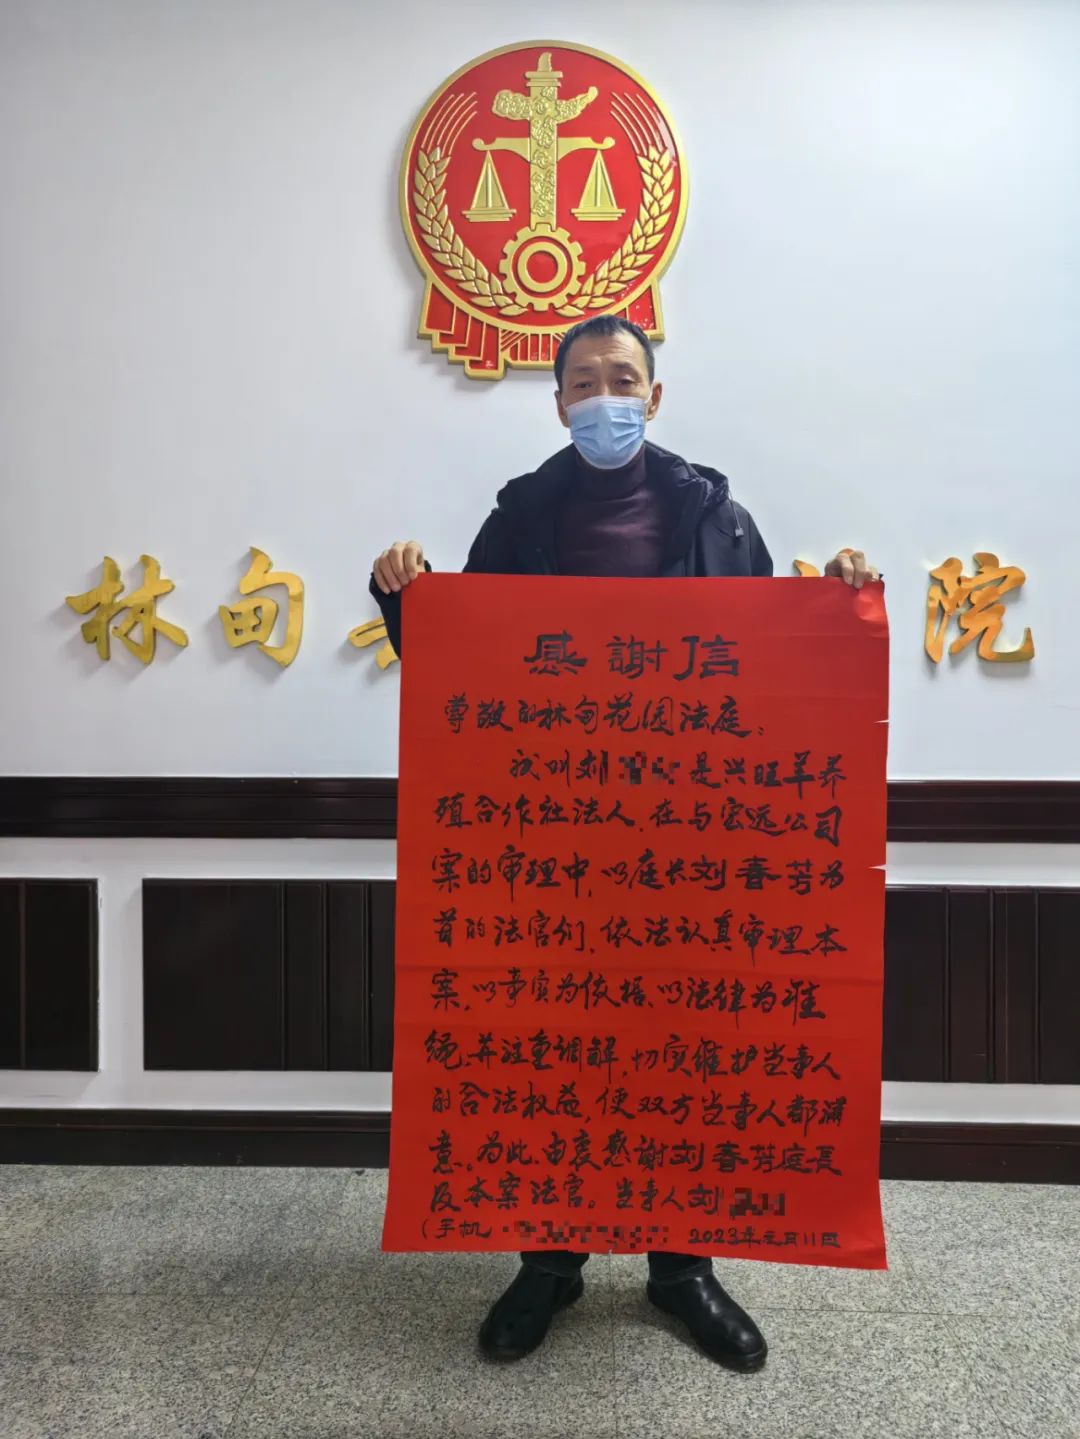 林甸 院
感謝信
尊敬的林甸花园法庭：
我叫刘 是兴旺羊养
殖合作社法人，在与宏远公司
案的审理中，以庭长刘春芳为
首的法官们，依法认真审理本
案，以事实为依据、以法律为准
绳，并注重调解，切实维护当事人
的合法权益，使双方当事人都满
意。为此、由衷感謝刘春芳庭長
及本案法官。当事人刘
（手机 2023年元月11日